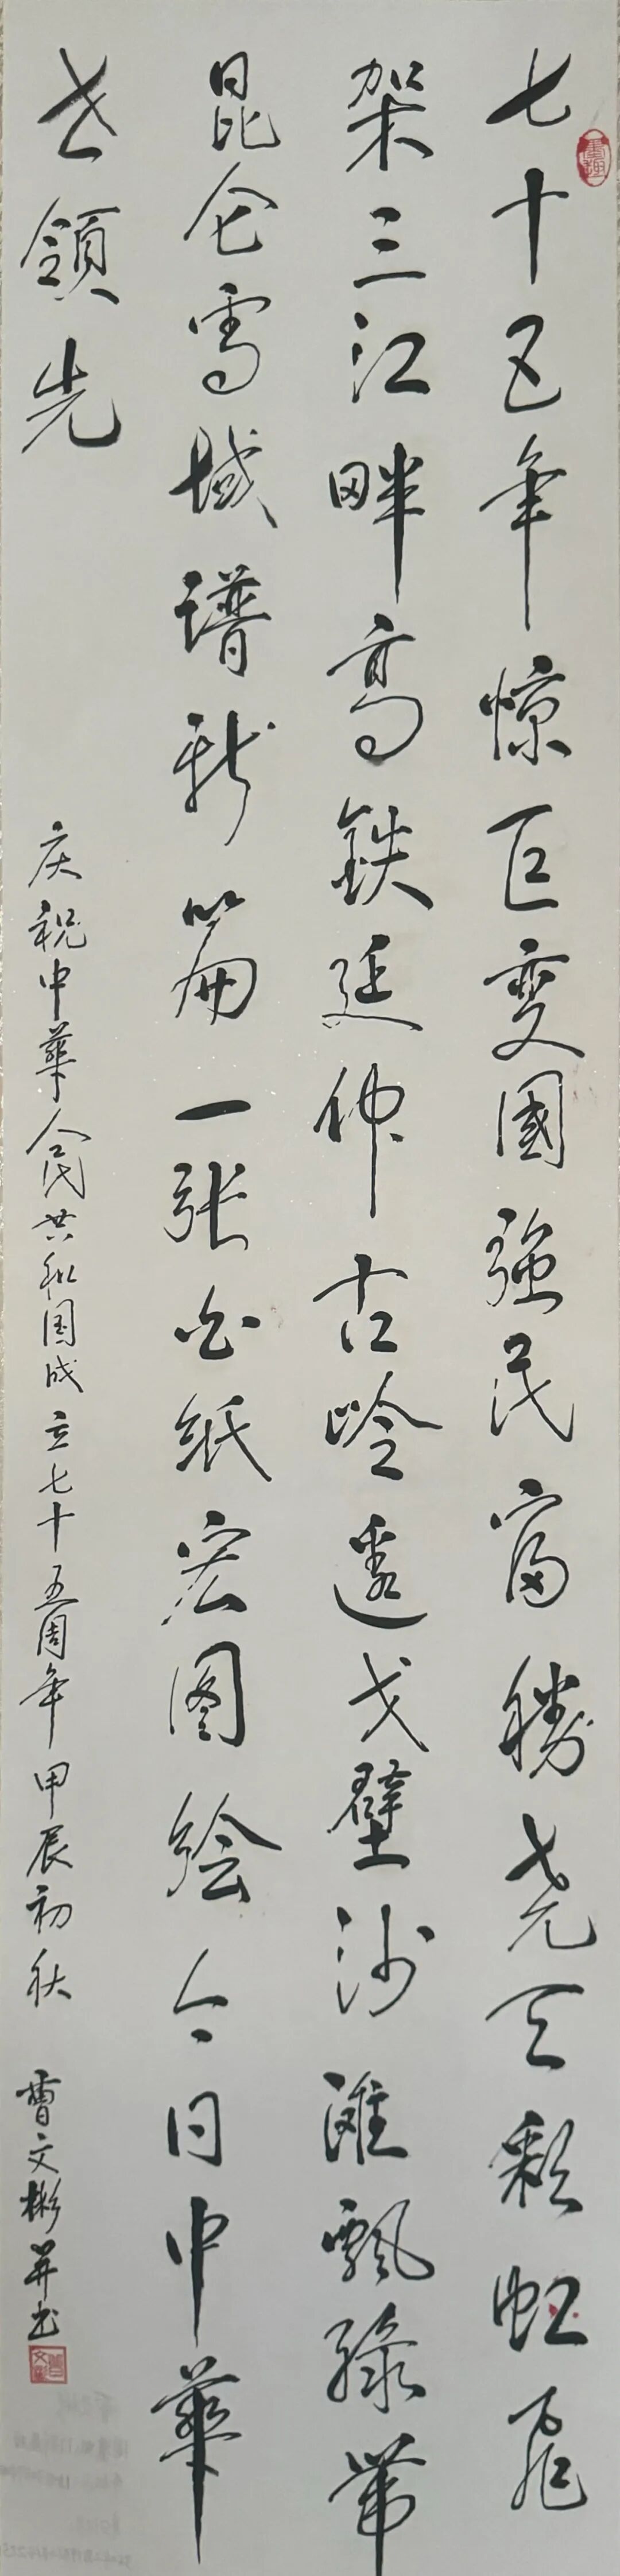 七十五年惊巨变國强民富勝尧天彩虹飛
架三江畔高鉄延伸古岭邊戈壁沙滩飘綠带
昆仑雪域譜新篇一张白纸宏图绘今日中華
世領先
庆祝中華人民共和国成立七十五周年甲辰初秋
曹文彬并书